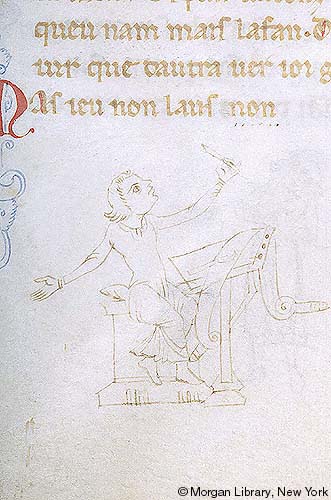 queu nam mais lafan. D
uir que dautra uer ioi g
as ieu non laus mon
© Morgan Library, New York